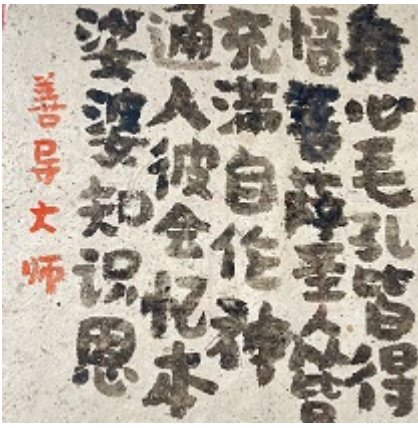 身心毛孔皆得
悟菩萨圣众皆
充满自作神
通入彼会忆本
娑婆知识恩
善导大师